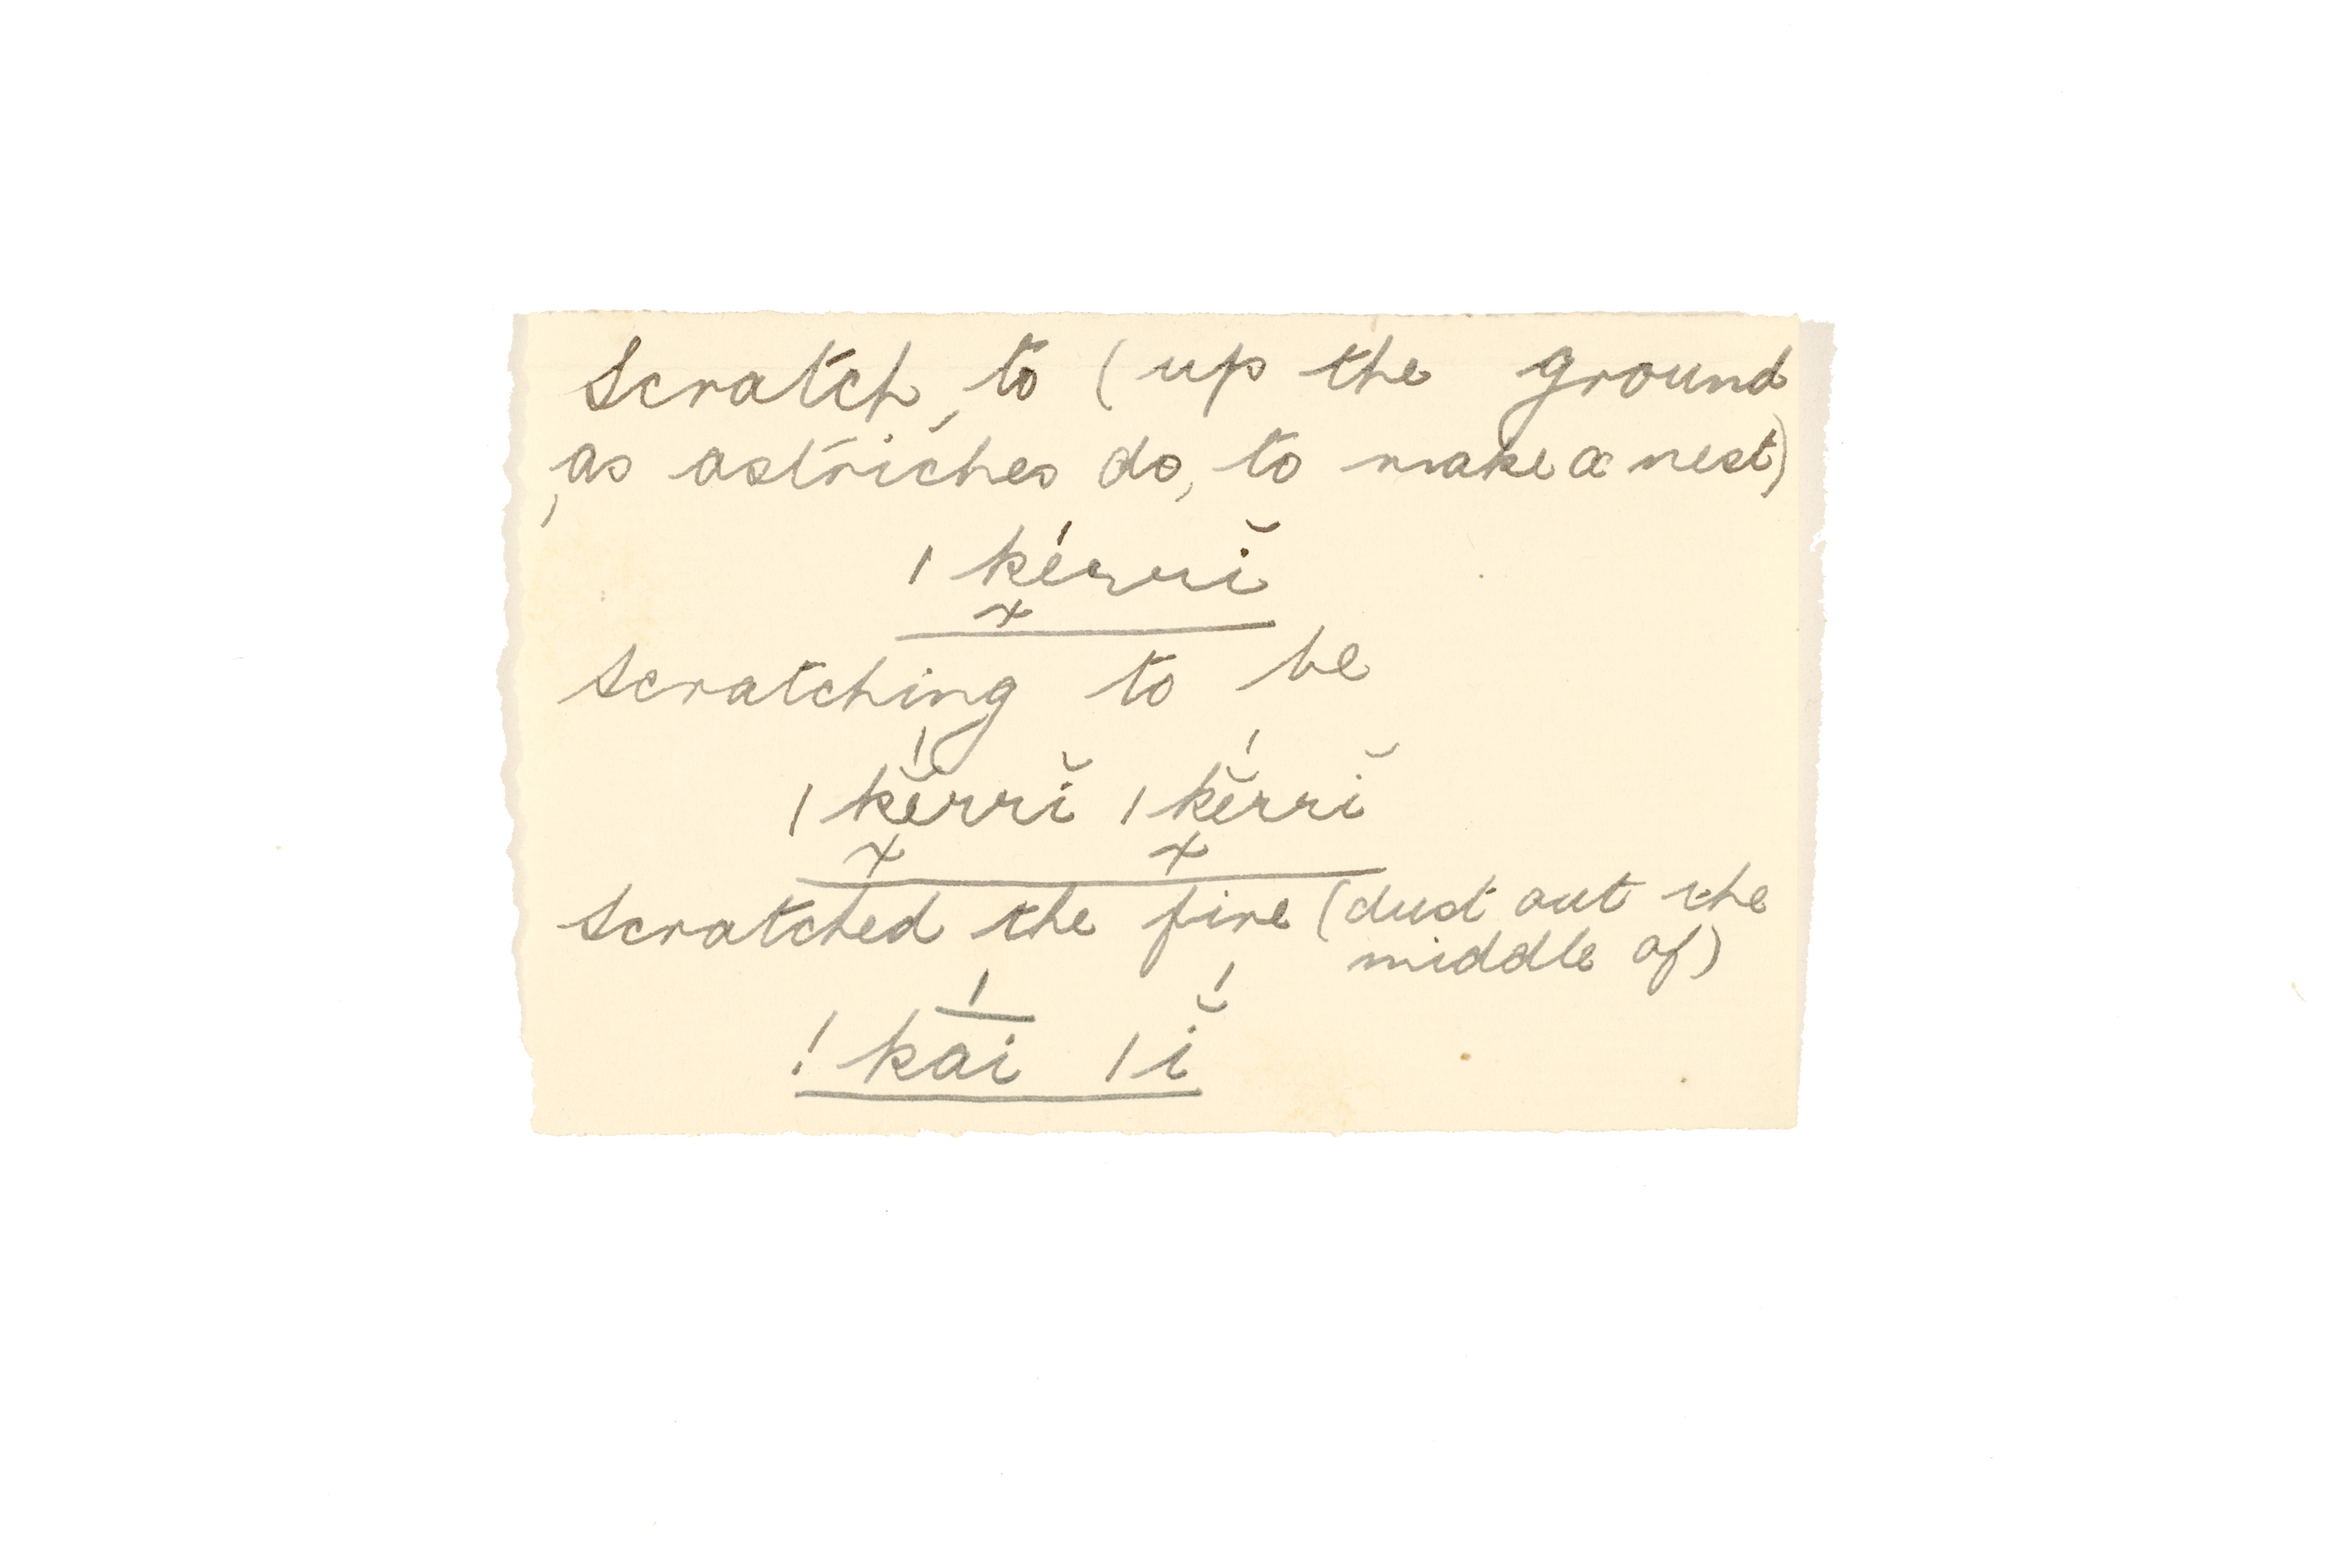 Scratch, to (up the ground
, as ostriches do, to make a nest)
ǀk͓érrĭ
scratching to be
ǀk͓ĕ́rrĭ ǀk͓ĕ́rrĭ
scratched the fire (dust out the
middle of)
!kā́i ǀĭ́